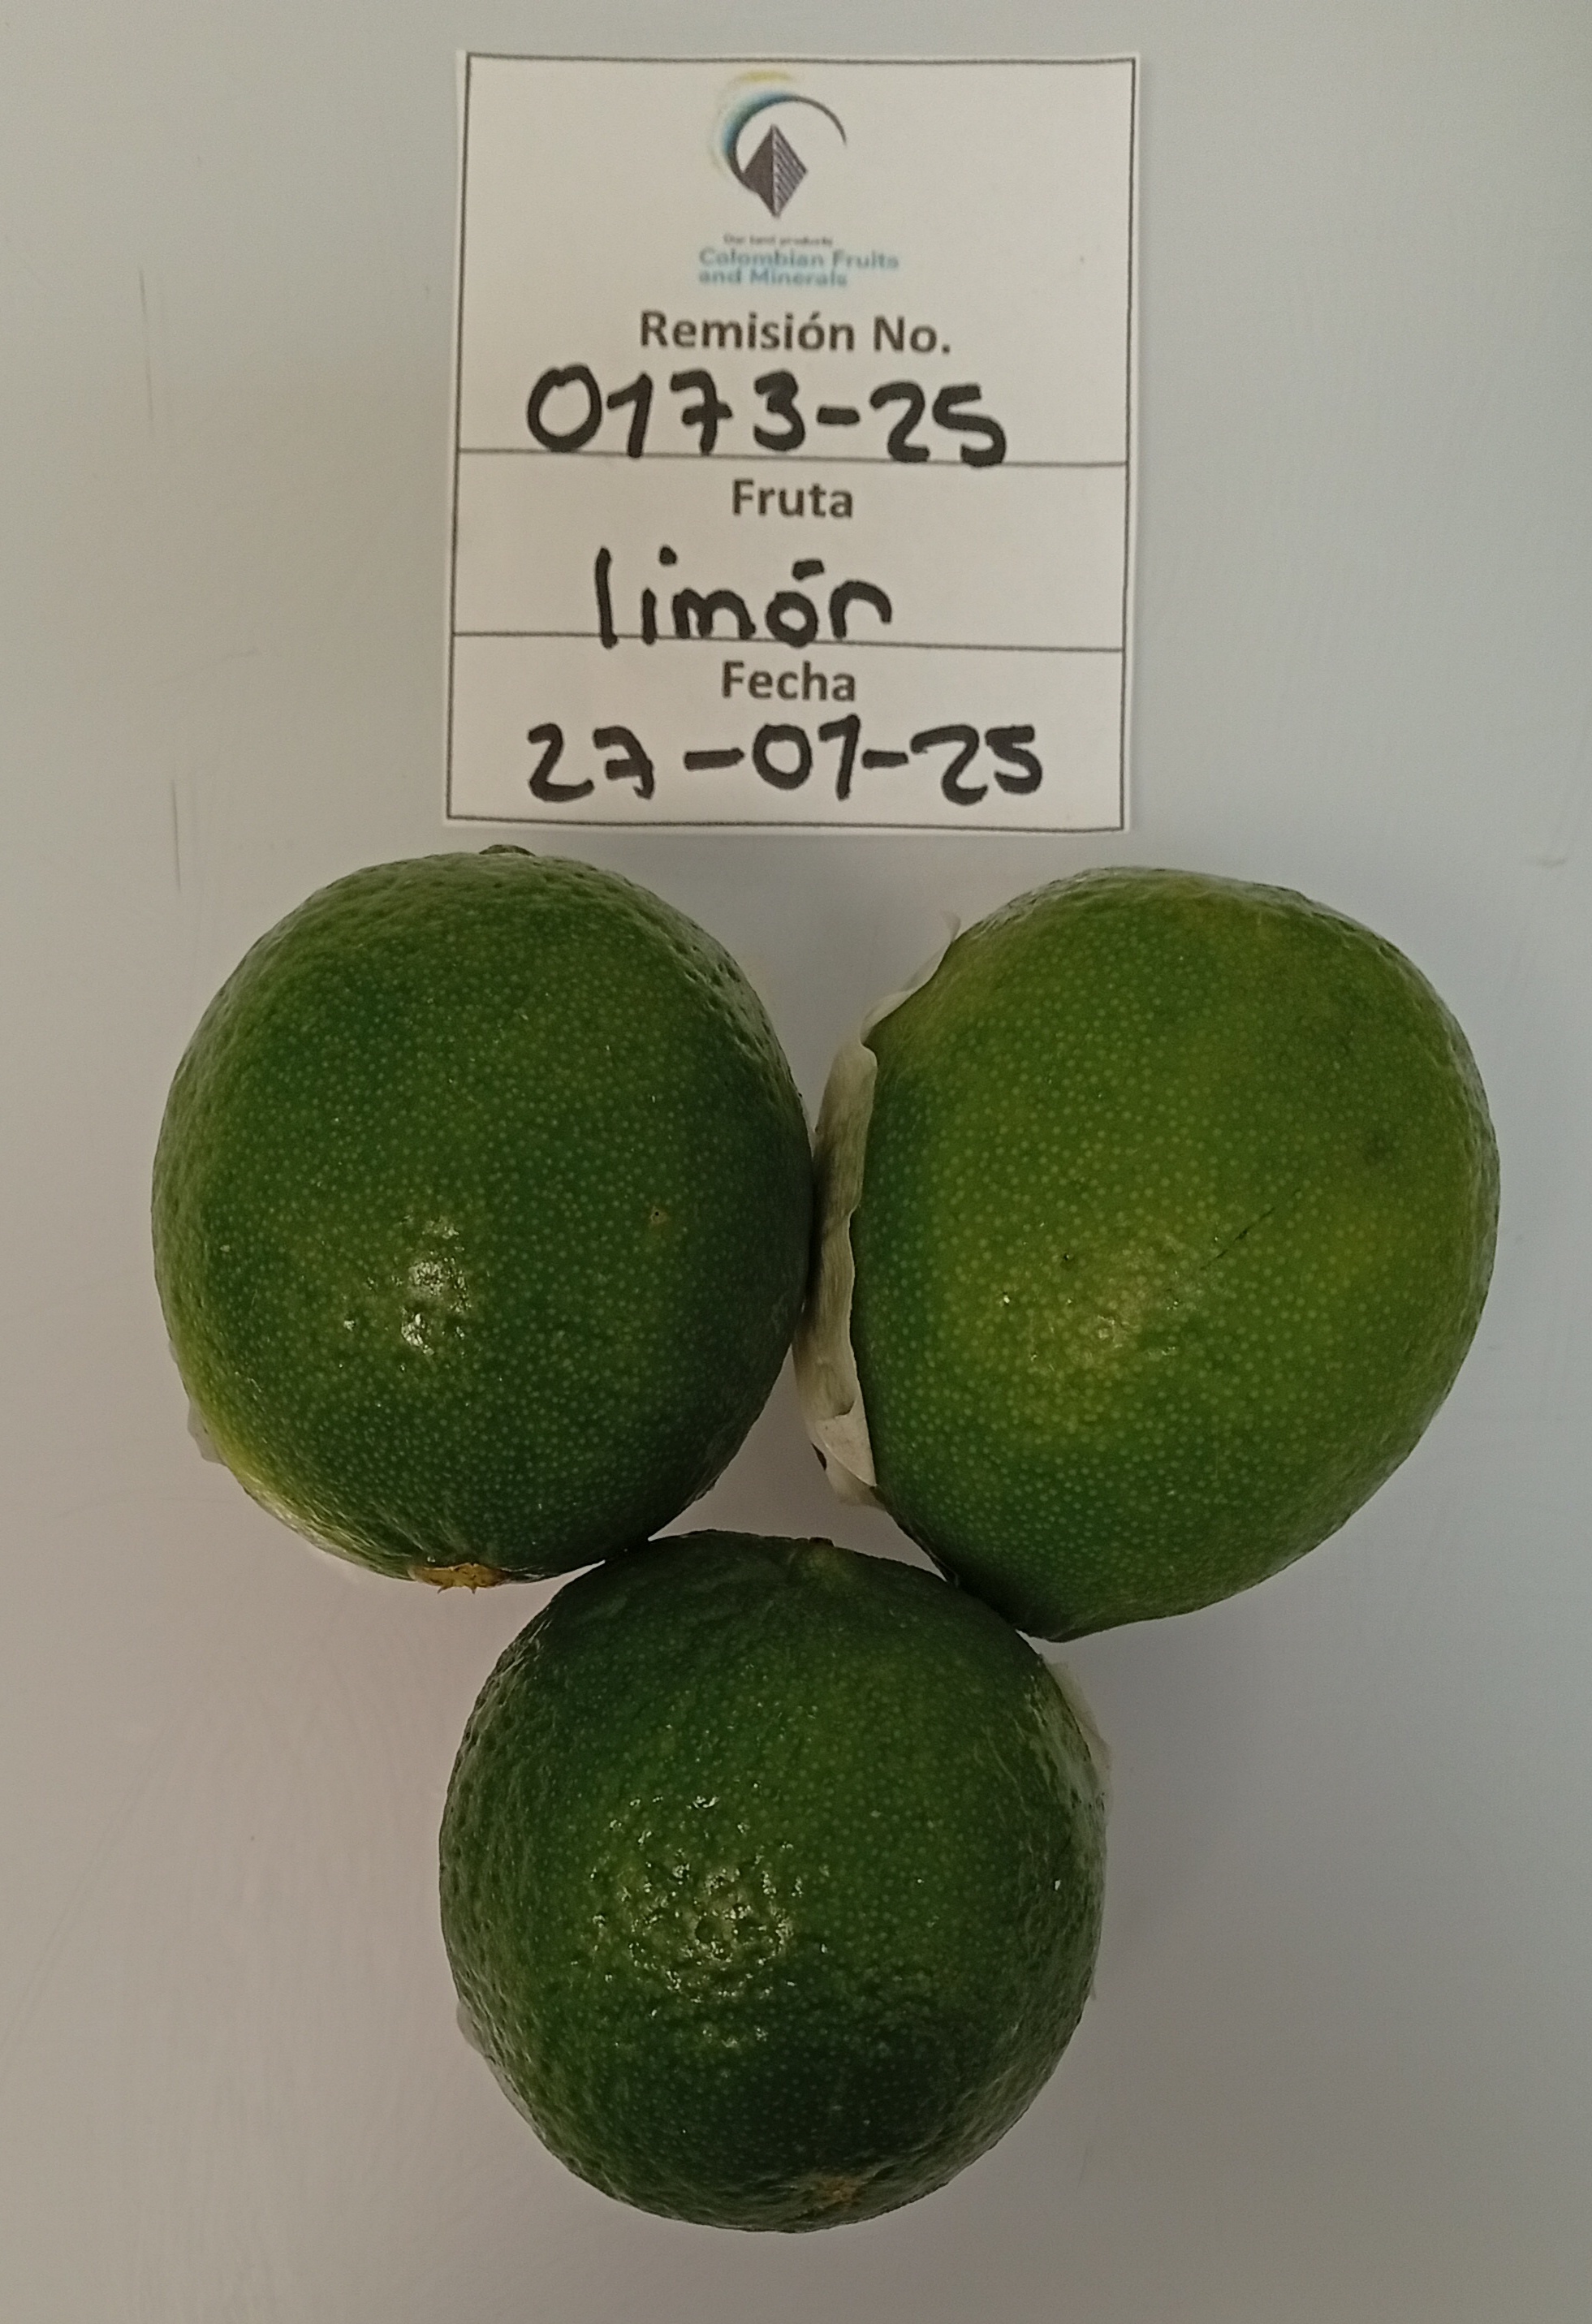 Our land products
Colombian Fruits
and Minerals
Remisión No.
0173-25
Fruta
limón
Fecha
27-01-25